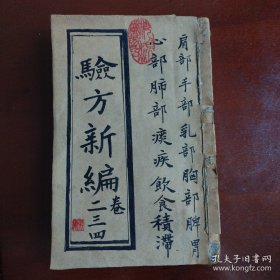 肩部手部乳部胸部脾胃
心部肺部痰疾飲食積滯
驗方新編
卷二三四
孔夫子旧书网